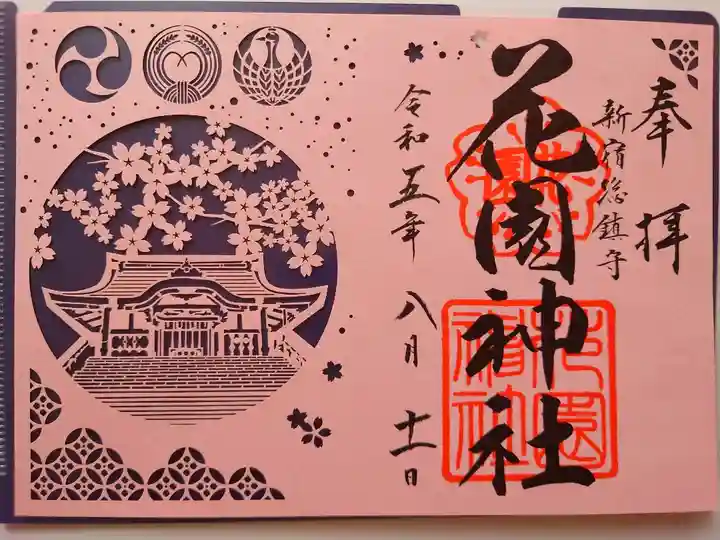 奉拝
新宿総鎮守
花園神社
花園
花園神社
令和五年 八月 十一日